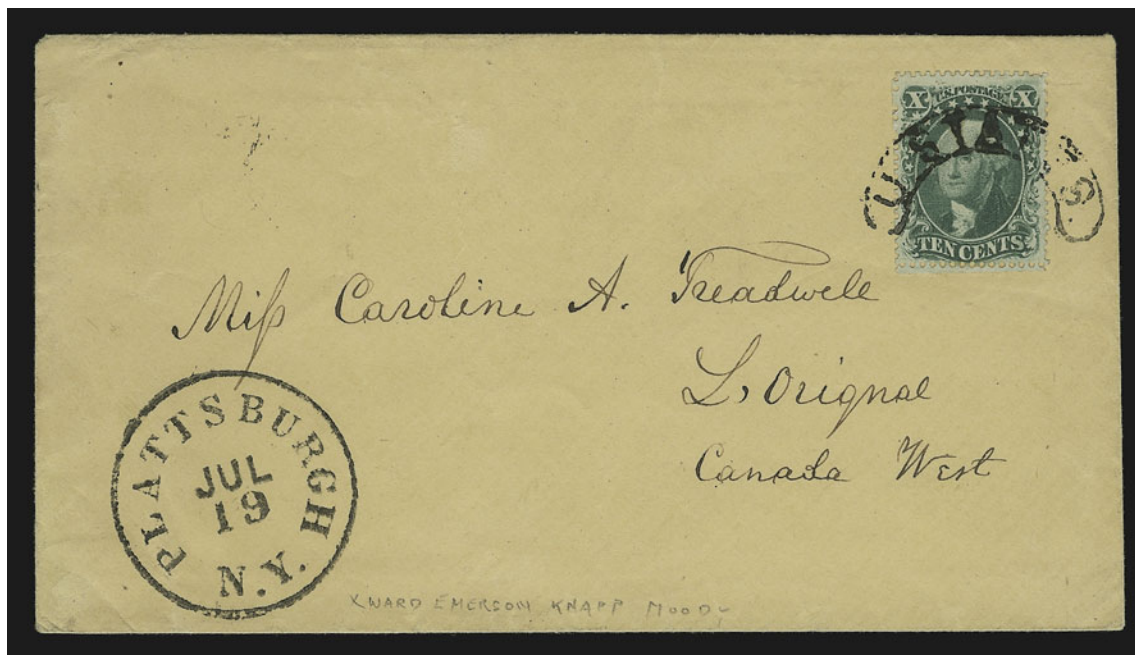 X U.S. POSTAGE X
U. STATES.
TEN CENTS.
Miss Caroline A. Treadwell
L'Orignal
Canada West
PLATTSBURGH
JUL
19
N.Y.
XWARD EMERSON KNAPP MOODY